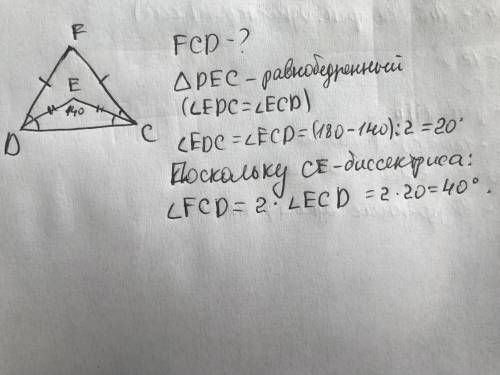 F
E
140
D
C
FCD - ?
△DEC - равнобедренный
(∠EDC=∠ECD)
∠EDC=∠ECD=(180-140):2=20°
Поскольку CE-биссектриса:
∠FCD= 2·∠ECD =2·20=40°.